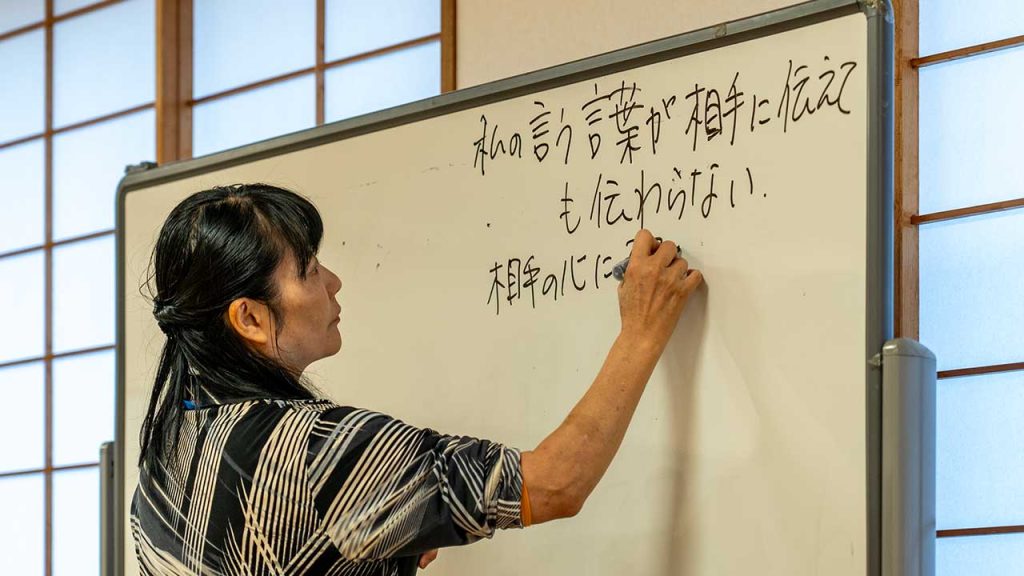 私の言う言葉が相手に伝えて
も伝わらない.
相手の心に